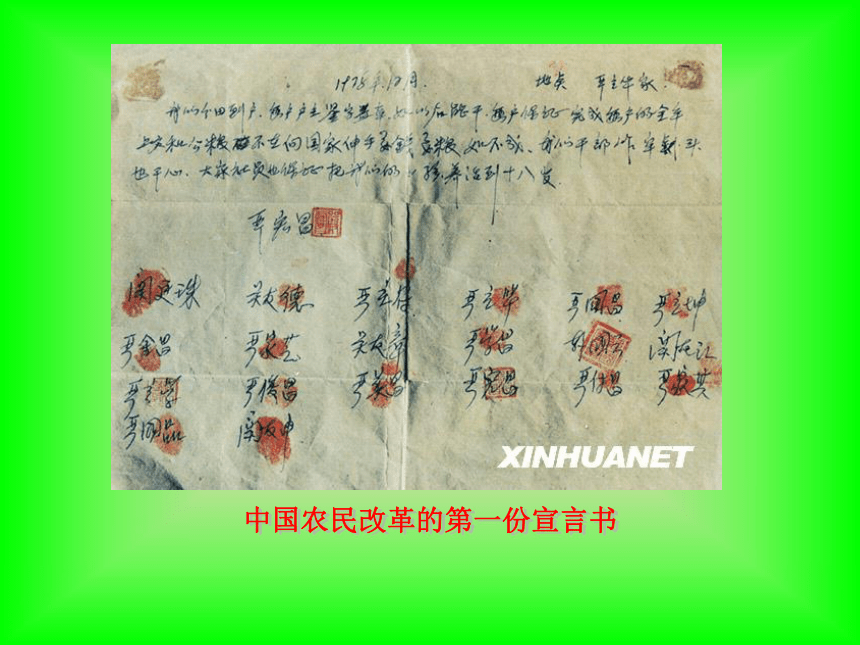 1978年12月. 地点 严立华家.
我们分田到户,每户户主签字盖章,如以后能干,每户保证完成每户的全年
上交和公粮不在向国家伸手要钱要粮,如不成,我们干部作牢刹头
也干心,大家社员也保证把我们的小孩养活到十八岁.
严宏昌
关廷珠 关友德 严立符 严立华 严国昌 严立坤
严金昌 严家芝 关友章 严学昌 韩国云 关友江
严立学 严俊昌 严美昌 严宏昌 严付昌 严家其
严国品 关友申
XINHUANET
中国农民改革的第一份宣言书